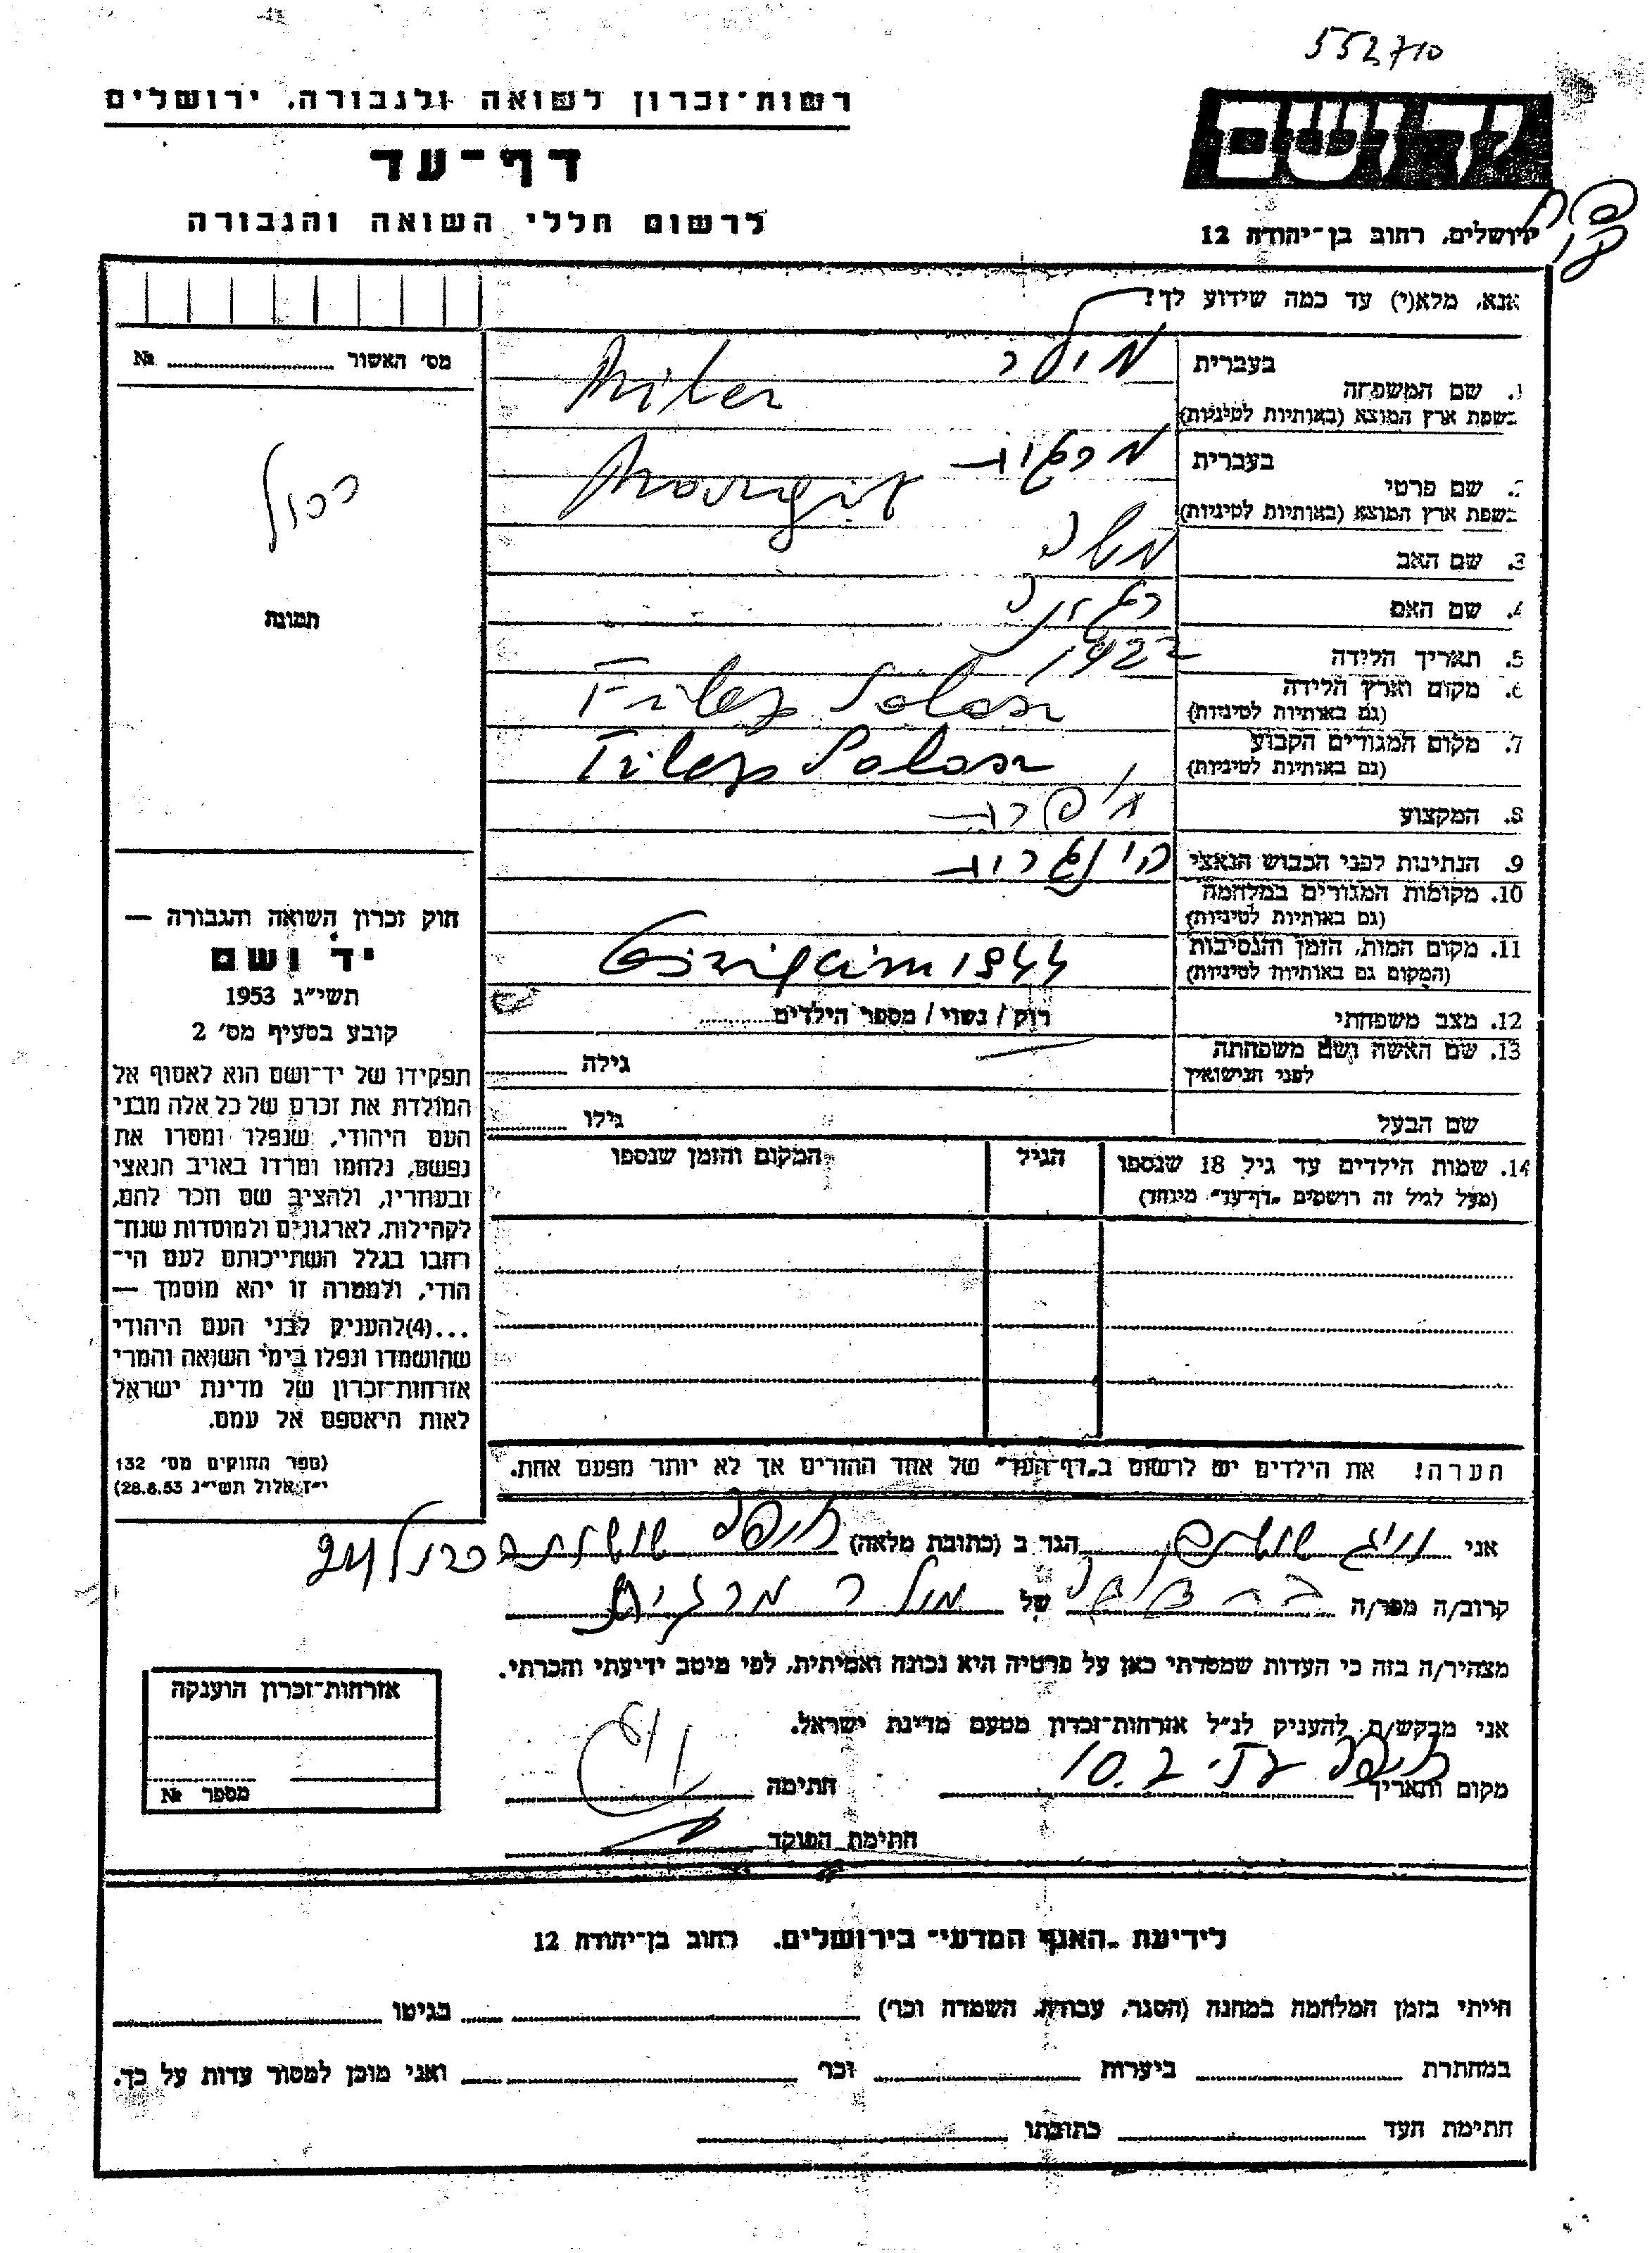 552710
רשות־זכרון לשואה ולגבורה, ירושלים
דף־עד
לרשום חללי השואה והגבורה
יד ושם
ירושלים, רחוב בן־יהודה 12
אנא, מלא(י) עד כמה שידוע לך!
מס' האשור № 
1. שם המשפחה בעברית מילר
בשפת ארץ המוצא (באותיות לטיניות) Miler
2. שם פרטי בעברית מרגיט
בשפת ארץ המוצא (באותיות לטיניות) Margit
3. שם האב
4. שם האם
5. תאריך הלידה 1922
6. מקום וארץ הלידה
(גם באותיות לטיניות)
7. מקום המגורים הקבוע
(גם באותיות לטיניות)
8. המקצוע
9. הנתינות לפני הכבוש הנאצי הונגרית
10. מקומות המגורים במלחמה
(גם באותיות לטיניות)
11. מקום המות, הזמן והנסיבות 1944
(המקום גם באותיות לטיניות)
12. מצב משפחתי רוק / נשוי / מספר הילדים
13. שם האשה ושם משפחתה גילה
לפני הנישואין
שם הבעל גילו
14. שמות הילדים עד גיל 18 שנספו הגיל המקום והזמן שנספו
(מעל לגיל זה רושמים "דף־עד" מיוחד)
הערה! את הילדים יש לרשום ב"דף־העד" של אחד ההורים אך לא יותר מפעם אחת.
תמונה
חוק זכרון השואה והגבורה —
יד ושם
תשי"ג 1953
קובע בסעיף מס' 2
תפקידו של יד־ושם הוא לאסוף אל
המולדת את זכרם של כל אלה מבני
העם היהודי, שנפלו ומסרו את
נפשם, נלחמו ומרדו באויב הנאצי
ובעוזריו, ולהציב שם וזכר להם,
לקהילות, לארגונים ולמוסדות שנח־
רבו בגלל השתייכותם לעם הי־
הודי, ולמטרה זו יהא מוסמך —
...(4)להעניק לבני העם היהודי
שהושמדו ונפלו בימי השואה והמרי
אזרחות־זכרון של מדינת ישראל
לאות היאספם אל עמם.
(ספר החוקים מס' 132
י"ז אלול תשי"ג 28.8.53)
אני הגר ב (כתובת מלאה) חיפה
קרוב/ה מכר/ה של מילר מרגיט
מצהיר/ה בזה כי העדות שמסרתי כאן על פרטיה היא נכונה ואמיתית, לפי מיטב ידיעתי והכרתי.
אני מבקש/ת להעניק לנ"ל אזרחות־זכרון מטעם מדינת ישראל.
מקום ותאריך חיפה 10.2 חתימה
חתימת הפוקד
אזרחות־זכרון הוענקה
מספר №
לידיעת "האגף המדעי" בירושלים, רחוב בן־יהודה 12
הייתי בזמן המלחמה במחנה (הסגר, עבודה, השמדה וכו') בגיטו
במחתרת ביערות וכו' ואני מוכן למסור עדות על כך.
חתימת העד כתובתו